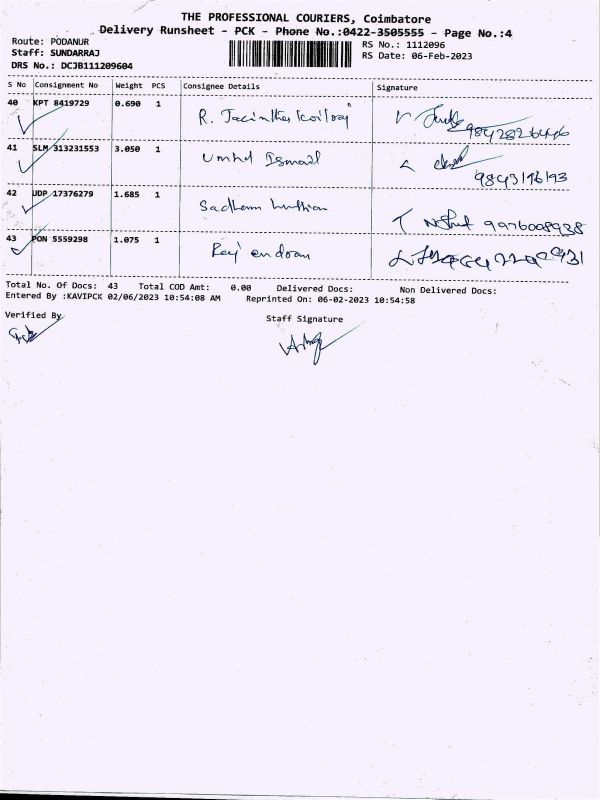 THE PROFESSIONAL COURIERS, Coimbatore
Delivery Runsheet - PCK - Phone No.:0422-3505555 - Page No.:4
Route: PODANUR
Staff: SUNDARRAJ
DRS No.: DCJB111209604
RS No.: 1112096
RS Date: 06-Feb-2023
S No Consignment No Weight PCS Consignee Details Signature
40 KPT 8419729 0.690 1 R.
41 SLM 313231553 3.050 1 Umhd Ismail
9843116193
42 UDP 17376279 1.685 1 Sadham
9976008938
43 PON 5559298 1.075 1
Total No. Of Docs: 43 Total COD Amt: 0.00 Delivered Docs: Non Delivered Docs:
Entered By :KAVIPCK 02/06/2023 10:54:08 AM Reprinted On: 06-02-2023 10:54:58
Verified By
Staff Signature